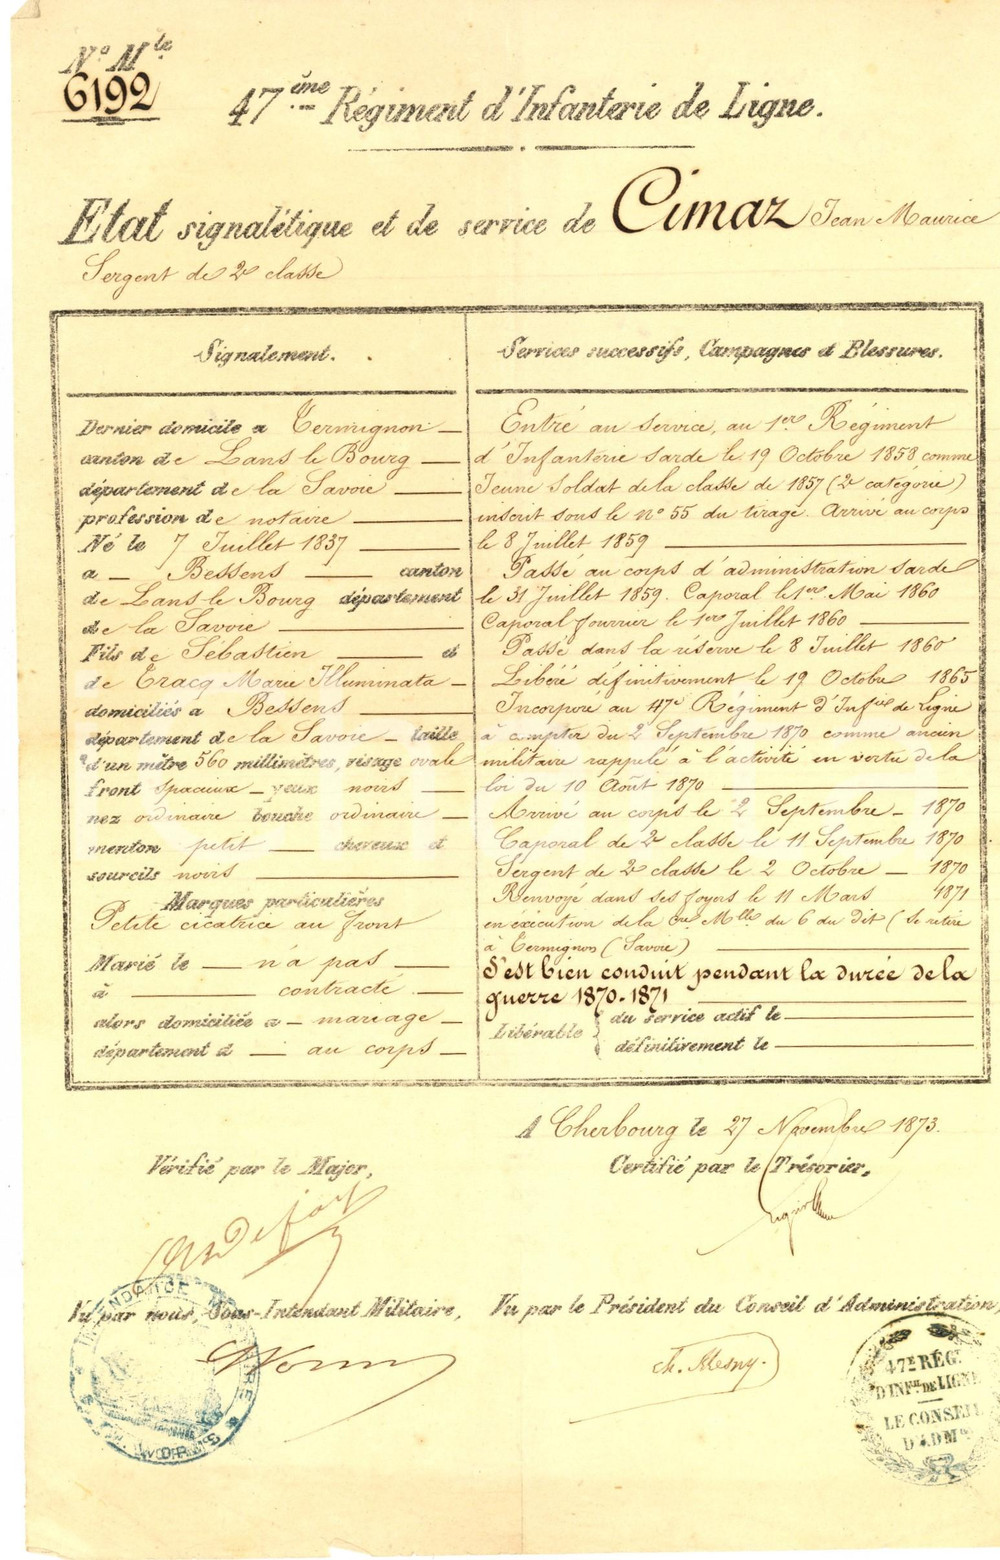 N° Mle
6192
47ème Régiment d'Infanterie de Ligne.
Etat signalétique et de service de Cimaz Jean Maurice
Sergent de 2e classe
Signalement.
Dernier domicile a Termignon
canton de Lans le Bourg
département de la Savoie
profession de notaire
Né le 7 Juillet 1837
a Bessens canton
de Lans-le-Bourg département
de la Savoie
Fils de Sébastien et
de Eracq Marie Illuminata
domiciliés a Bessens
département de la Savoie taille
d'un mètre 560 millimètres, visage ovale
front spacieux yeux noirs
nez ordinaire bouche ordinaire
menton petit cheveux et
sourcils noirs
Marques particulières
Petite cicatrice au front
Marié le n'a pas
à contracté
alors domiciliée a mariage
département d au corps
Services successifs, Campagnes et Blessures.
Entré au service, au 1er Régiment
d'Infanterie sarde le 19 Octobre 1858 comme
Jeune soldat de la classe de 1857 (2e catégorie)
inscrit sous le n° 55 du tirage. Arrivé au corps
le 8 Juillet 1859
Passé au corps d'administration sarde
le 31 Juillet 1859. Caporal le 1er Mai 1860
Caporal fourrier le 1er Juillet 1860
Passé dans la réserve le 8 Juillet 1860
Libéré définitivement le 19 Octobre 1865
Incorporé au 47e Régiment d'Infie de Ligne
à compter du 2 Septembre 1870 comme ancien
militaire rappelé à l'activité en vertu de la
loi du 10 Août 1870
Arrivé au corps le 2 Septembre 1870
Caporal de 2e classe le 11 Septembre 1870
Sergent de 2e classe le 2 Octobre 1870
Renvoyé dans ses foyers le 11 Mars 1871
en exécution de la Cre Mlle du 6 du dit (Se retire
à Termignon (Savoie)
S'est bien conduit pendant la durée de la
guerre 1870-1871
Libérable { du service actif le
définitivement le
A Cherbourg le 27 Novembre 1873.
Vérifié par le Major,
Certifié par le Trésorier,
Vu par nous, Sous-Intendant Militaire,
Vu par le Président du Conseil d'Administration,
Ch. Mesny.
INTENDANCE
47E RÉG.
D'INFRIE DE LIGNE
LE CONSEIL
D'ADMON